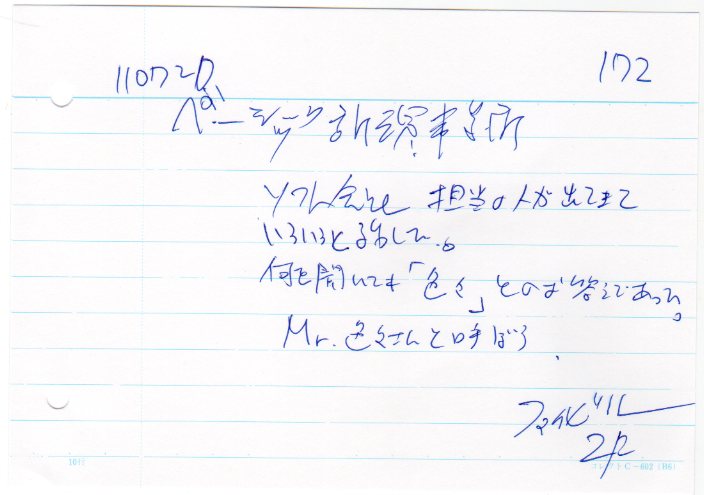 110720
172
ベーシック
ソフト会社 担当の人が出てきて
いろいろと話した。
何を聞いても「色々」とのお答えであった。
Mr.色々さんと呼ぼう
10行
コレクト C-602 (B6)